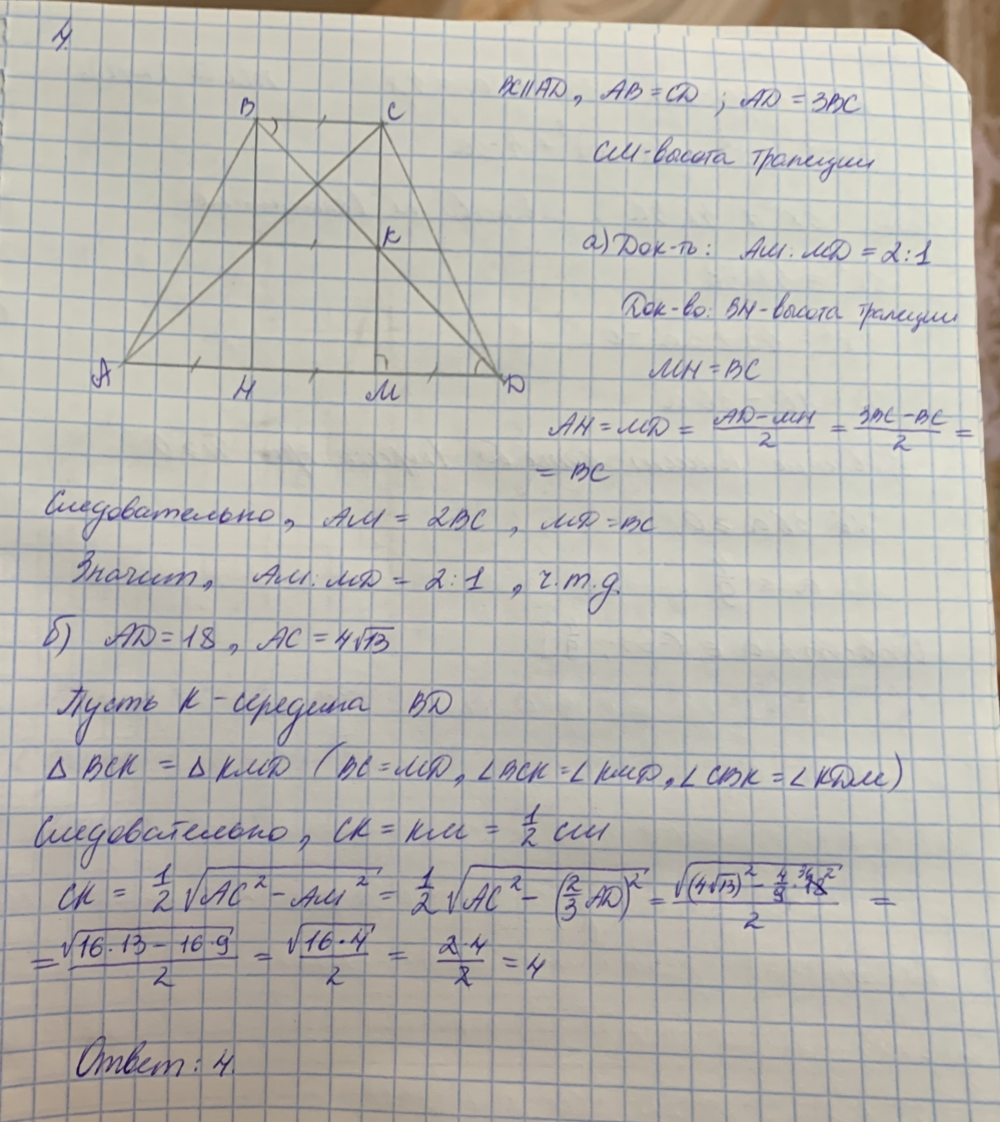 4
B C
K
A H M D
BC∥AD, AB = CD ; AD = 3BC
CM-высота трапеции
а) Док-ть: AM:MD = 2:1
Док-во: BH-высота трапеции
MH = BC
AH = MD = (AD-MH)/2 = (3BC-BC)/2 =
= BC
Следовательно, AM = 2BC, MD = BC
Значит, AM:MD = 2:1, ч.т.д.
б) AD = 18, AC = 4√13
Пусть K - середина BD
Δ BCK = Δ KMD (BC = MD, ∠BCK = ∠KMD, ∠CBK = ∠KDM)
Следовательно, CK = KM = 1/2 CM
CK = 1/2 √(AC² - AM²) = 1/2 √(AC² - (2/3 AD)²) = √((4√13)² - 4/9 · 18²)/2 =
= √(16·13 - 16·9)/2 = √(16·4)/2 = 2·4/2 = 4
Ответ: 4.